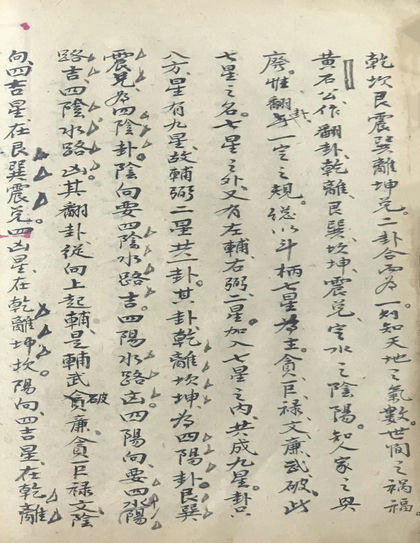 乾坎艮震巽離坤兌二卦合而為一則知天地之氣數世間之禍福
黃石公作翻卦乾離艮巽坎坤震兌定水之陰陽知人家之興
廢性翻卦一定之規從以斗柄七星為主貪巨祿文廉武破此
七星之名七星之外又有左輔右弼二星加入七星之內共成九星卦只
八方星有九星故輔弼二星共一卦其卦乾離坎坤為四陽卦艮巽
震兌為四陰卦陰向要四陰水路吉四陽水路凶四陽向要四陽水
路吉四陰水路凶其翻卦從向上起輔是輔武破廉貪巨祿文陰
向四吉星在艮巽震兌四凶星在乾離坤坎陽向四吉星在乾離